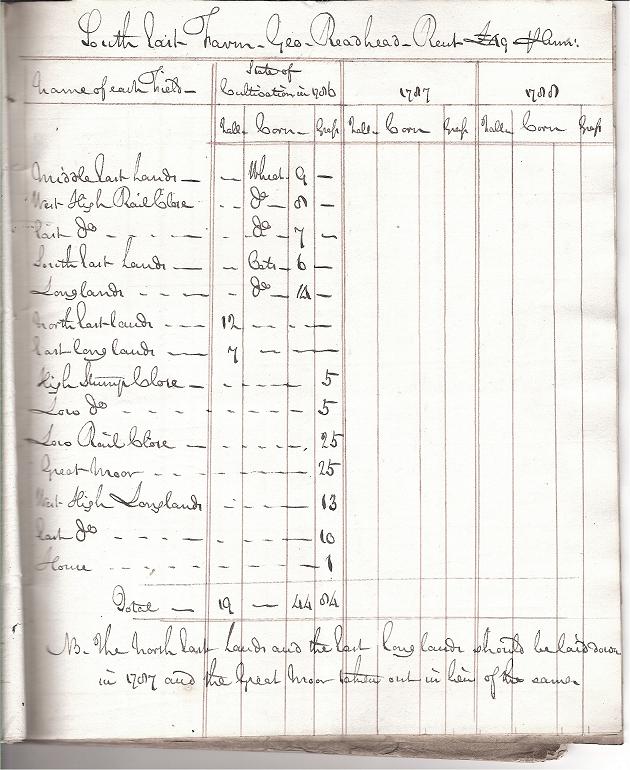 South East Farm - Geo - Readhead - Rent Ann:
Name of each Field - State of Cultivation in 1786 1787 1788
Fall - Corn - Grass Fall - Corn - Grass Fall - Corn Grass
Middle East Lands — -- Wheat - 9 —
West High Rail Close -- Do - 8 —
East Do - - - - - -- Do - 7 —
South East Lands — -- Oats - 6 —
Longlands - - - -- Do - 14 —
North East Lands - - - 12 - - - —
East Long Lands — 7 — —
High Stump Close - - - - - 5
Low Do - - - - - - - - - 5
Low Rail Close — - - - - 25
Great Moor - - - - - - - 25
West High Longlands - - - - 13
East Do - - - - - - - - 10
House - - - - - - - - 1
Total — 19 — 44 84
NB. The North East Lands and the East Long Lands should be laid down
in 1787 and the Great Moor taken out in lieu of the same -